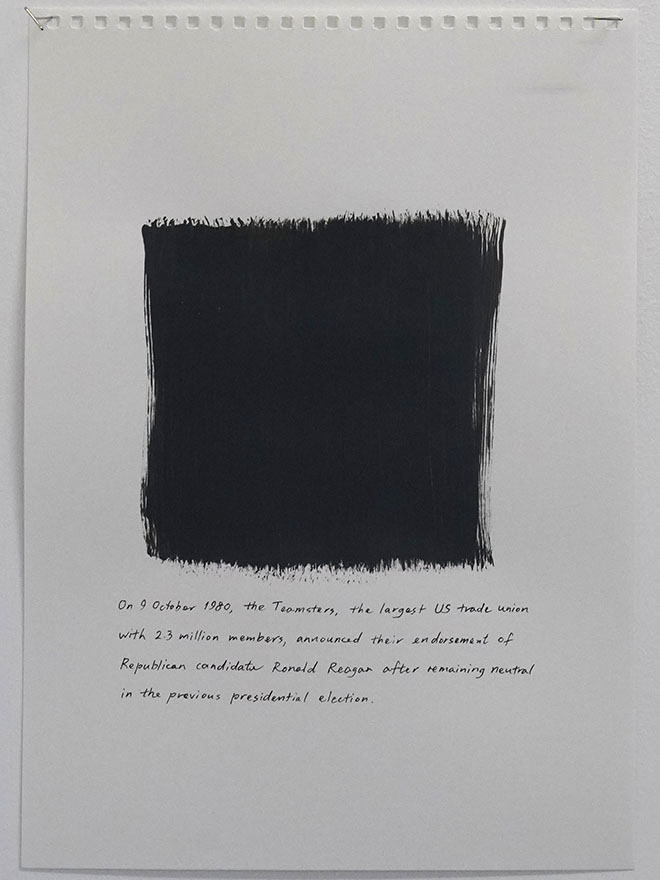 On 9 October 1980, the Teamsters, the largest US trade union
with 2.3 million members, announced their endorsement of
Republican candidate Ronald Reagan after remaining neutral
in the previous presidential election.